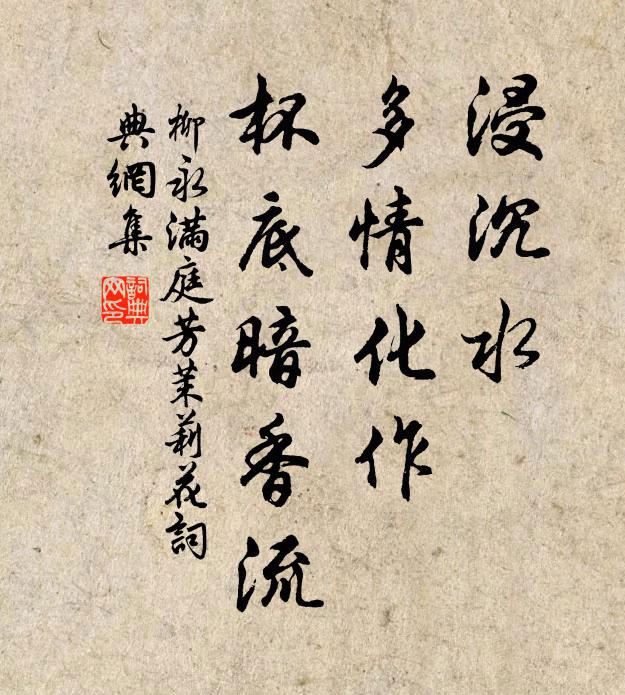 浸沉水
多情化作
杯底暗香流
柳永滿庭芳茉莉花詞
典網集
詞典網印